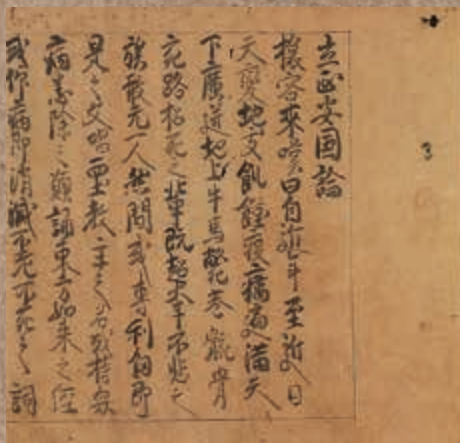 立正安国論
旅客来嘆曰自近年至近日
天變地夭飢饉疫癘遍満天
下廣迸地上牛馬斃巷骸骨
充路招死之輩既超大半不悲之
族敢无一人然間或専利剣即
是之文唱西土教主之名或持衆
病悉除之願誦東方如来之経
或仰病即消滅不老不死之詞